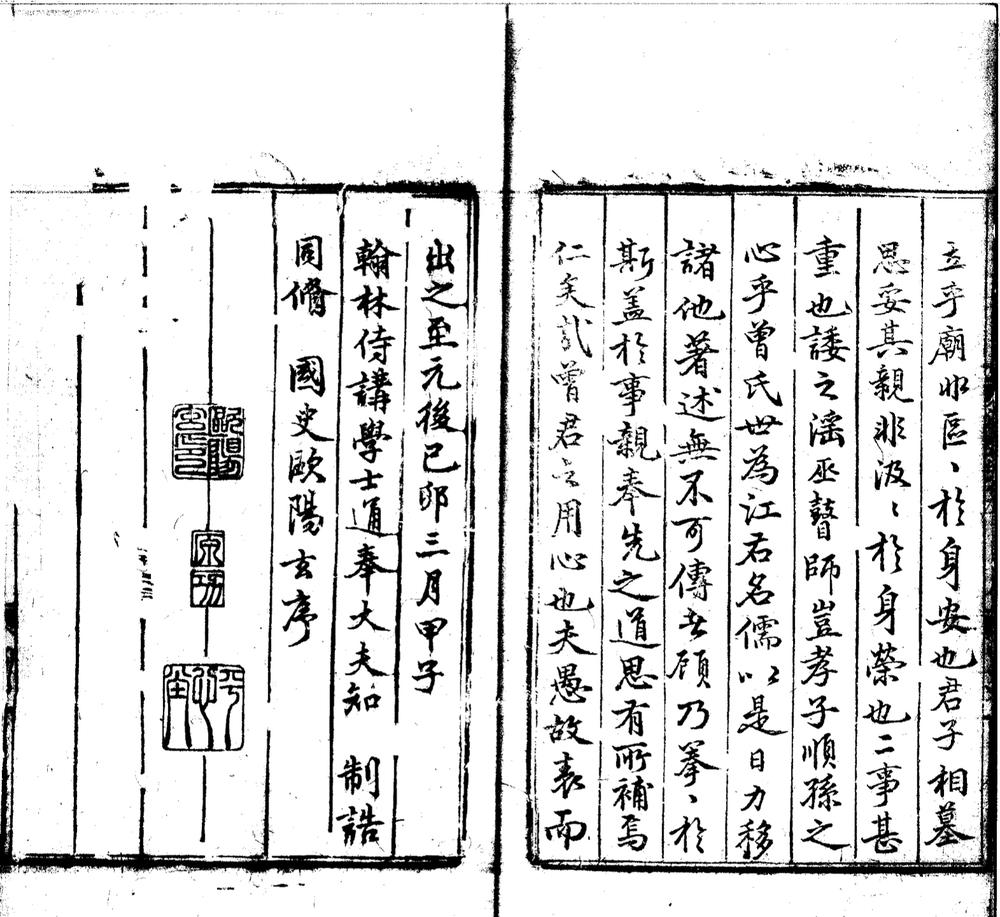 立乎廟非區〻於身安也君子相墓
思妥其親非汲〻於身榮也二事甚
重也諉之滛巫瞽師豈孝子順孫之
心乎曾氏世為江右名儒以是日力移
諸他著述無不可傳者顧乃拳〻於
斯盖於事親奉先之道思有所補焉
仁矣哉曾君之用心也夫愚故表而
出之至元後己卯三月甲子
翰林侍講學士通奉大夫知 制誥
同脩 國史歐陽玄序
歐陽玄印
原功
平心堂